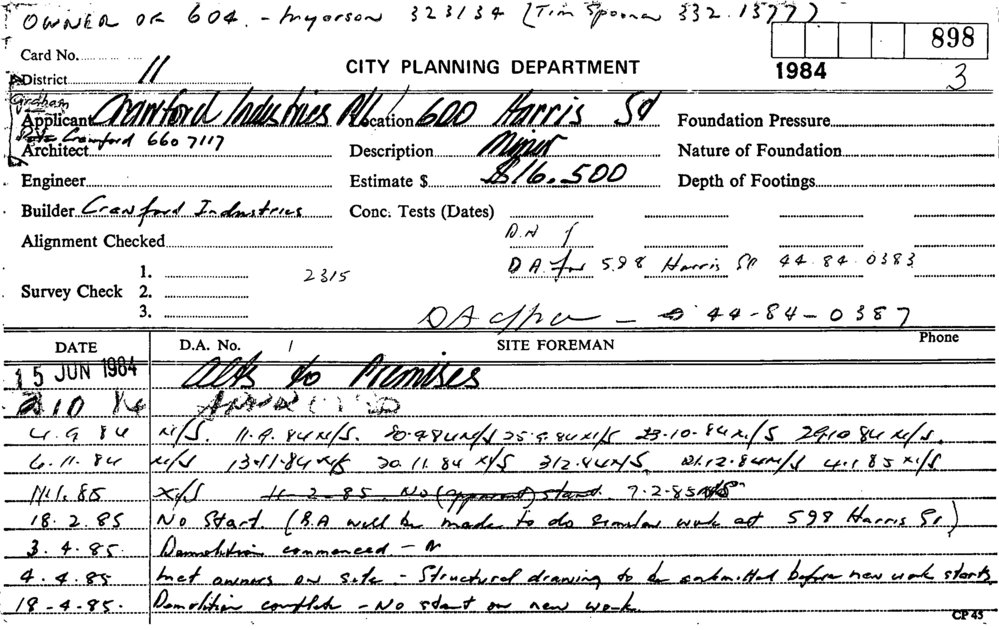 OWNER OF 604. - Meyerson 323134 (Tim Spooner 332.1577)
898
Card No.
District 11
CITY PLANNING DEPARTMENT
1984
3
Graham
Applicant Crawford Industries P/L Location 600 Harris St Foundation Pressure
Pete Crawford 660 7117
Architect Description Minor Nature of Foundation
Engineer Estimate $ $16.500 Depth of Footings
Builder Crawford Industries Conc. Tests (Dates)
Alignment Checked
D A for 598 Harris St 44.84.0383
1. 2315
Survey Check 2.
3.
DA - 44-84-0387
DATE D.A. No. / SITE FOREMAN Phone
15 JUN 1984 Alts to Premises
10 84
4.9.84 N/S. 11.9.84 N/S. 20.9.84 N/S 25.9.84 N/S 23.10.84 N/S 29.10.84 N/S.
6.11.84 N/S 13.11.84 N/S 20.11.84 N/S 3.12.84 N/S. 21.12.84 N/S 4.1.85 N/S.
11.1.85 N/S 11-2-85. No (apparent) start. 7.2.85 N/S
18.2.85 No Start (B.A will be made to do similar work at 598 Harris St)
3.4.85. Demolition commenced -
4.4.85 Met owners on site - Structural drawing to be submitted before new work starts
18-4-85. Demolition complete - No start on new work.
CP 45